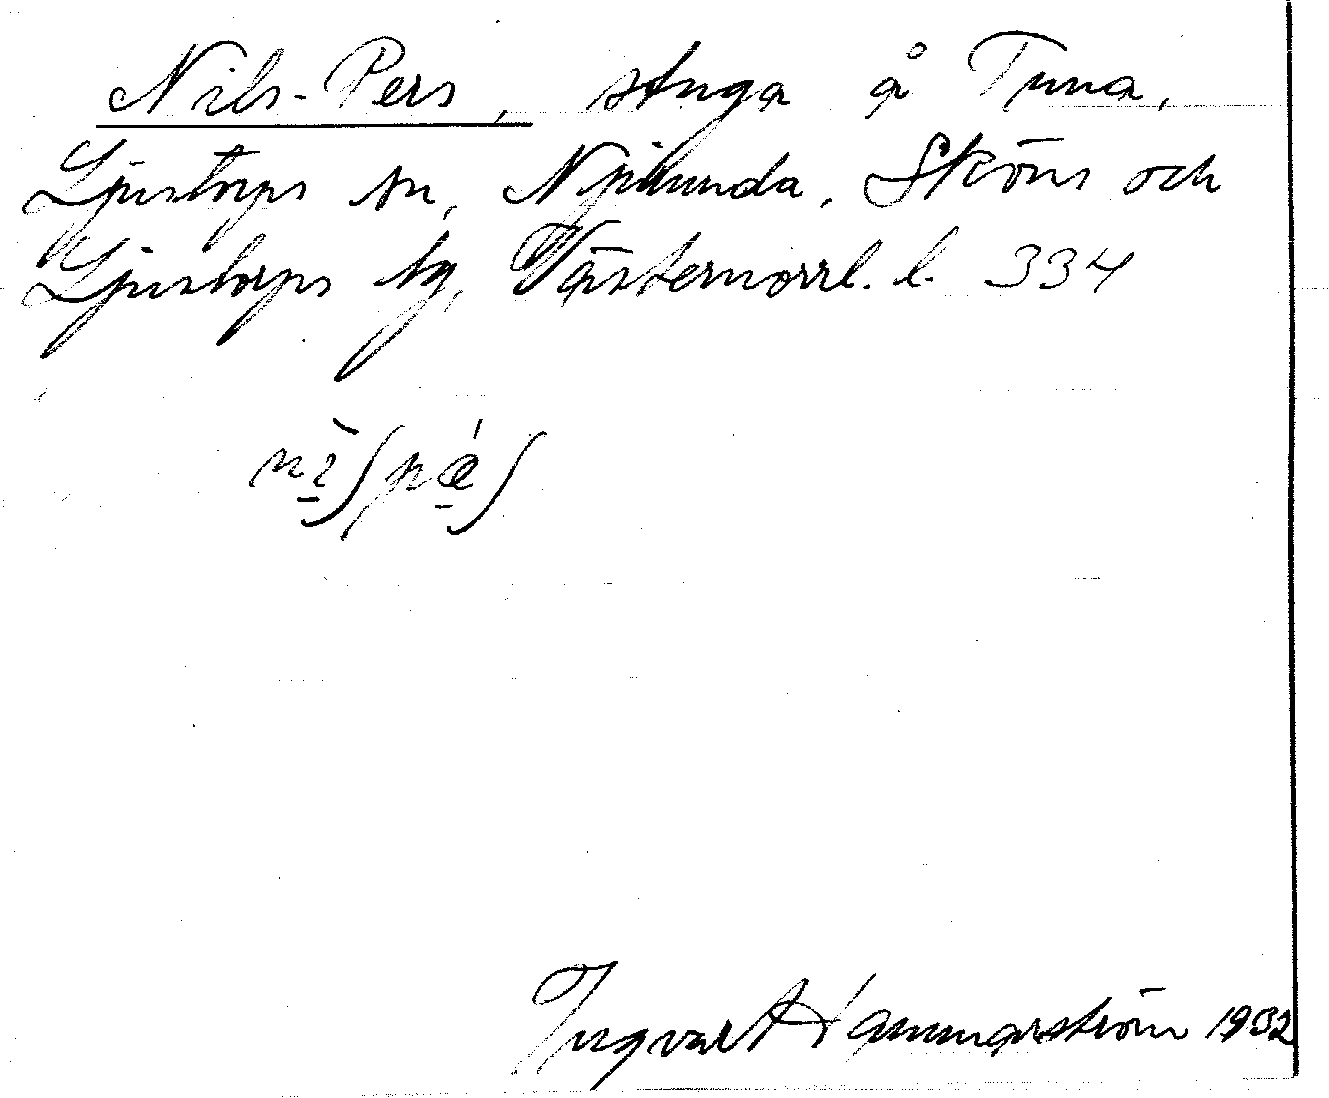 Nils-Pers, stuga å Tuna,
Ljustorps sn, Njurunda, Sköns och
Ljustorps tg, Västernorrl. l. 334
Ingvar Hammarström 1932